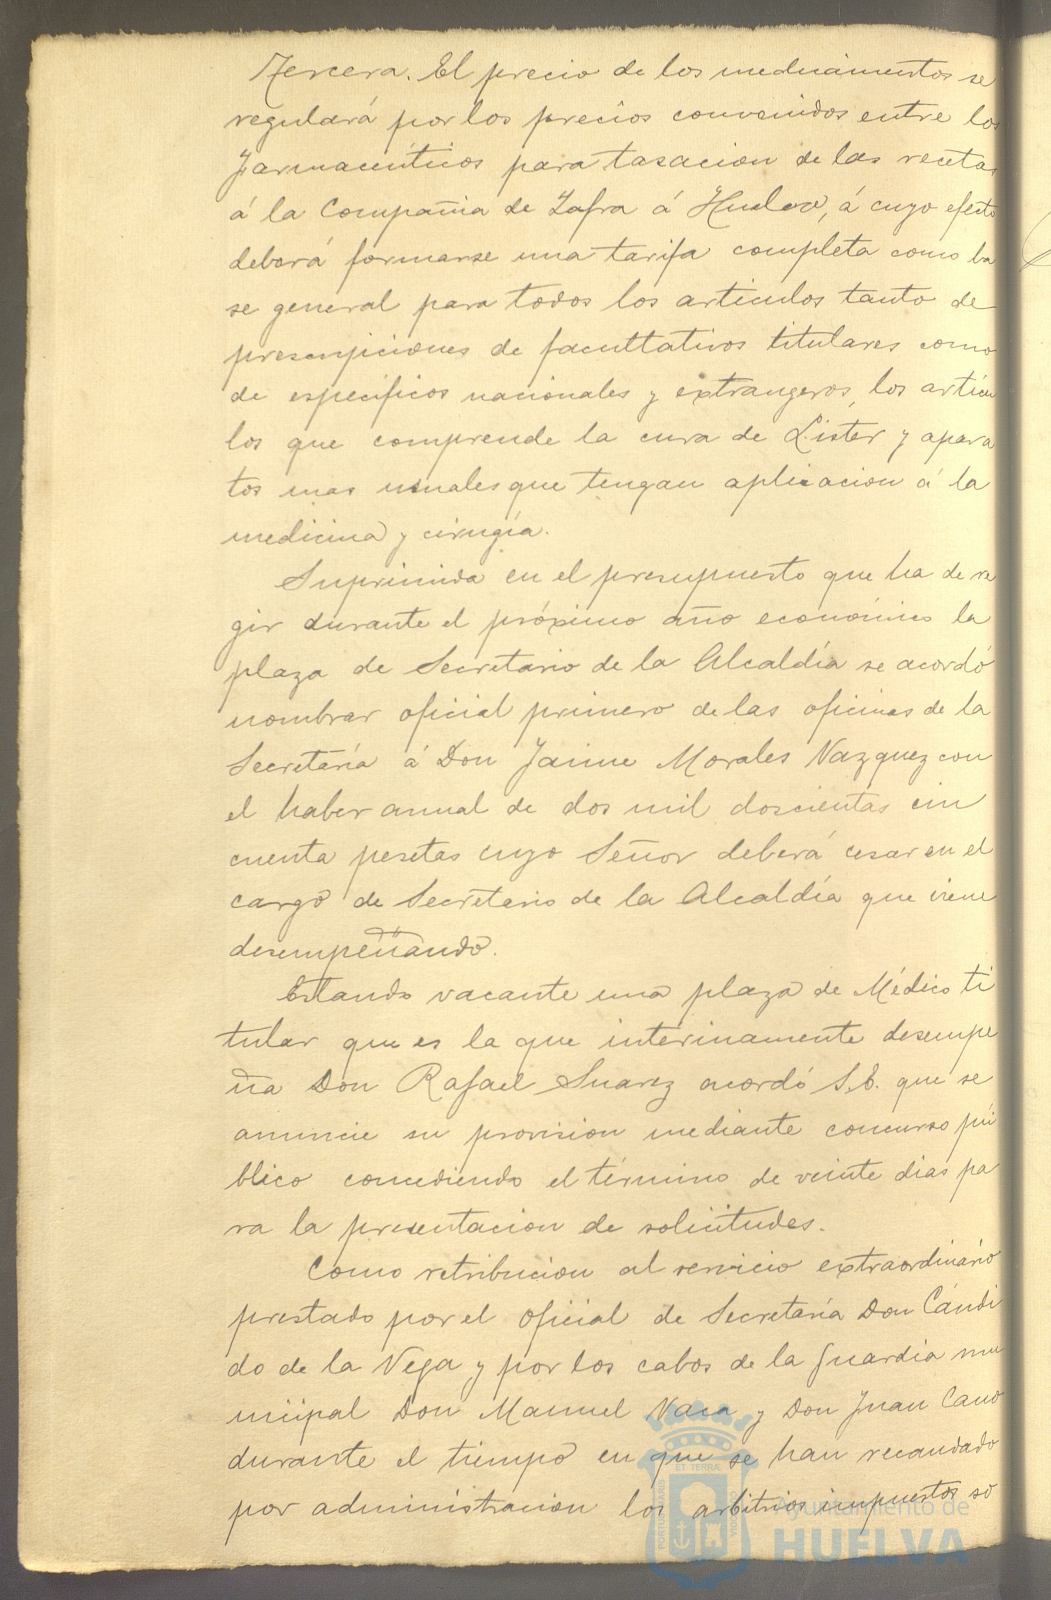 Tercera. El precio de los medicamentos se
regulará por los precios convenidos entre los
farmacéuticos para tasacion de las recetas
á la Compañia de Zafra á Huelva, á cuyo efecto
deberá formarse una tarifa completa como ba
se general para todos los articulos tanto de
prescripciones de facultativos titulares como
de especificos nacionales y extrangeros, los artícu
los que comprende la cura de Lister y apara
tos mas usuales que tengan aplicacion á la
medicina y cirugía.
Suprimida en el presupuesto que ha de re
gir durante el próximo año económico la
plaza de Secretario de la Alcaldía se acordó
nombrar oficial primero de las oficinas de la
Secretaría á Don Jaime Morales Vazquez con
el haber anual de dos mil doscientas cin
cuenta pesetas cuyo Señor deberá cesar en el
cargo de Secretario de la Alcaldía que viene
desempeñando.
Estando vacante una plaza de Médico ti
tular que es la que interinamente desempe
ña Don Rafael Suarez acordó S.E. que se
anuncie su provision mediante concurso pú
blico concediendo el término de veinte dias pa
ra la presentacion de solicitudes.
Como retribucion al servicio extraordinario
prestado por el oficial de Secretaría Don Cándi
do de la Vega y por los cabos de la Guardia mu
nicipal Don Manuel Vaca y Don Juan Cano
durante el tiempo en que se han recaudado
por administracion los arbitrios impuestos so
Ayuntamiento de
HUELVA